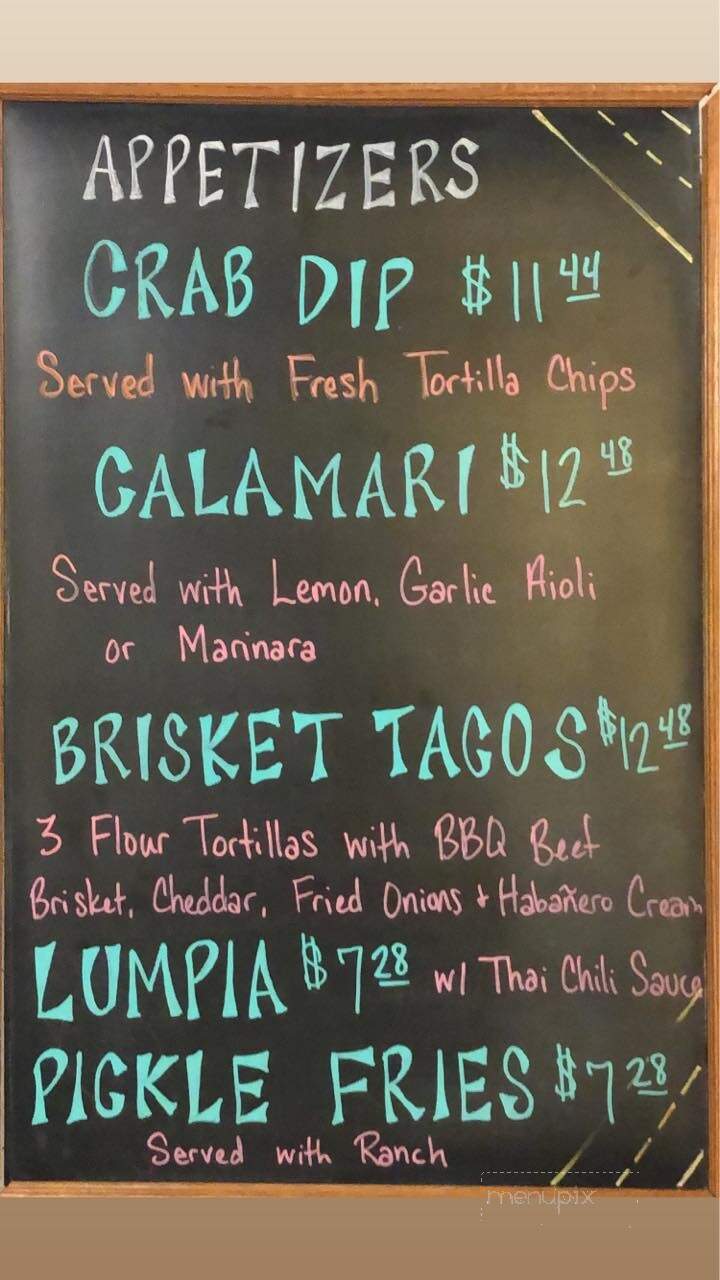 APPETIZERS
CRAB DIP $11 44
Served with Fresh Tortilla Chips
CALAMARI $12 48
Served with Lemon, Garlic Aioli
or Marinara
BRISKET TACOS $12 48
3 Flour Tortillas with BBQ Beef
Brisket, Cheddar, Fried Onions & Habañero Cream
LUMPIA $7 28 w/ Thai Chili Sauce
PICKLE FRIES $7 28
Served with Ranch
menupix